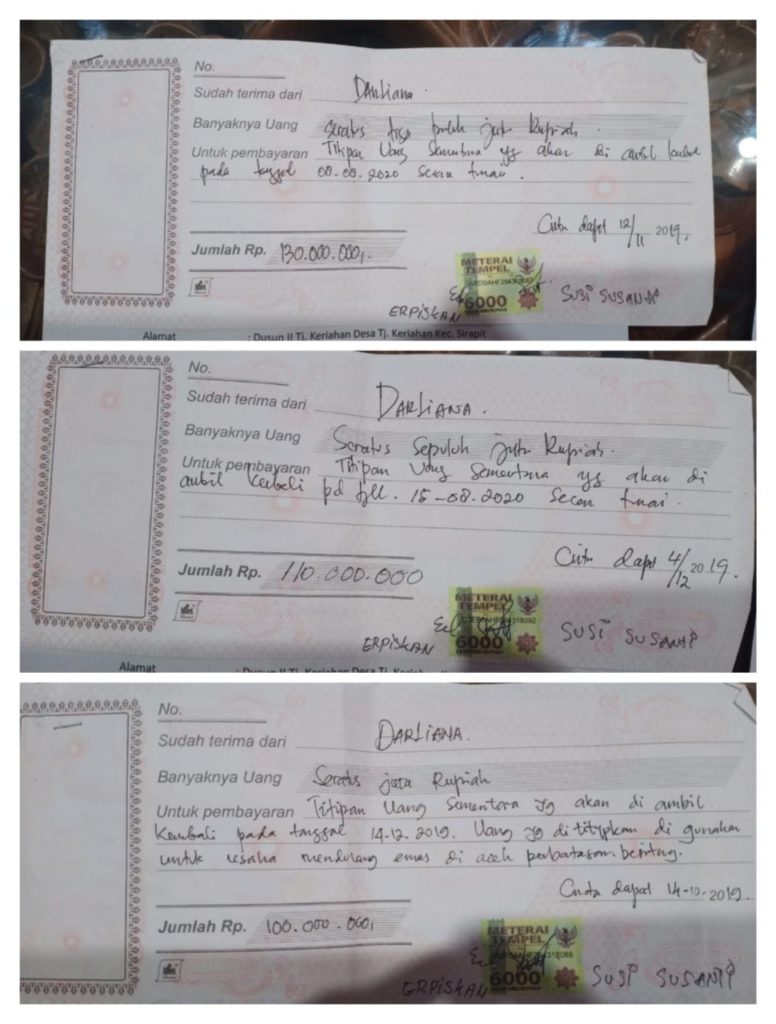 No.
Sudah terima dari DARLIANA.
Banyaknya Uang Seratus tiga puluh juta Rupiah.
Untuk pembayaran Titipan Uang Sementara yg akan di ambil
pada tanggal 2020 Secara tunai.
Cinta dapat 12/11 2019.
Jumlah Rp. 130.000.000,-
METERAI
TEMPEL
6000
ERPISKAN
SUSI SUSANTI
Alamat : Dusun II Tj. Keriahan Desa Tj. Keriahan Kec. Sirapit
No.
Sudah terima dari DARLIANA.
Banyaknya Uang Seratus Sepuluh juta Rupiah.
Untuk pembayaran Titipan Uang Sementara yg akan di
ambil kembali pd tgl. 15-08.2020 Secara tunai.
Cinta dapat 4/12 2019.
Jumlah Rp. 110.000.000
METERAI
TEMPEL
6000
ERPISKAN
SUSI SUSANTI
Alamat : Dusun II Tj. Keriahan Desa Tj.
No.
Sudah terima dari DARLIANA.
Banyaknya Uang Seratus juta Rupiah
Untuk pembayaran Titipan Uang Sementara yg akan di ambil.
Kembali pada tanggal 14-12.2019. Uang yg di titipkan di gunakan
untuk usaha mendulang emas di aceh perbatasan
Cinta dapat 14-10.2019.
Jumlah Rp. 100.000.000,
METERAI
TEMPEL
6000
ERPISKAN
SUSI SUSANTI